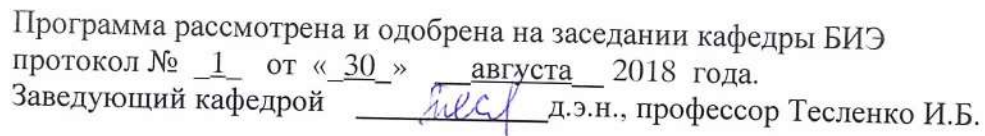 Программа рассмотрена и одобрена на заседании кафедры БИЭ
протокол № _1_ от «_30_» __августа__ 2018 года.
Заведующий кафедрой ____________д.э.н., профессор Тесленко И.Б.